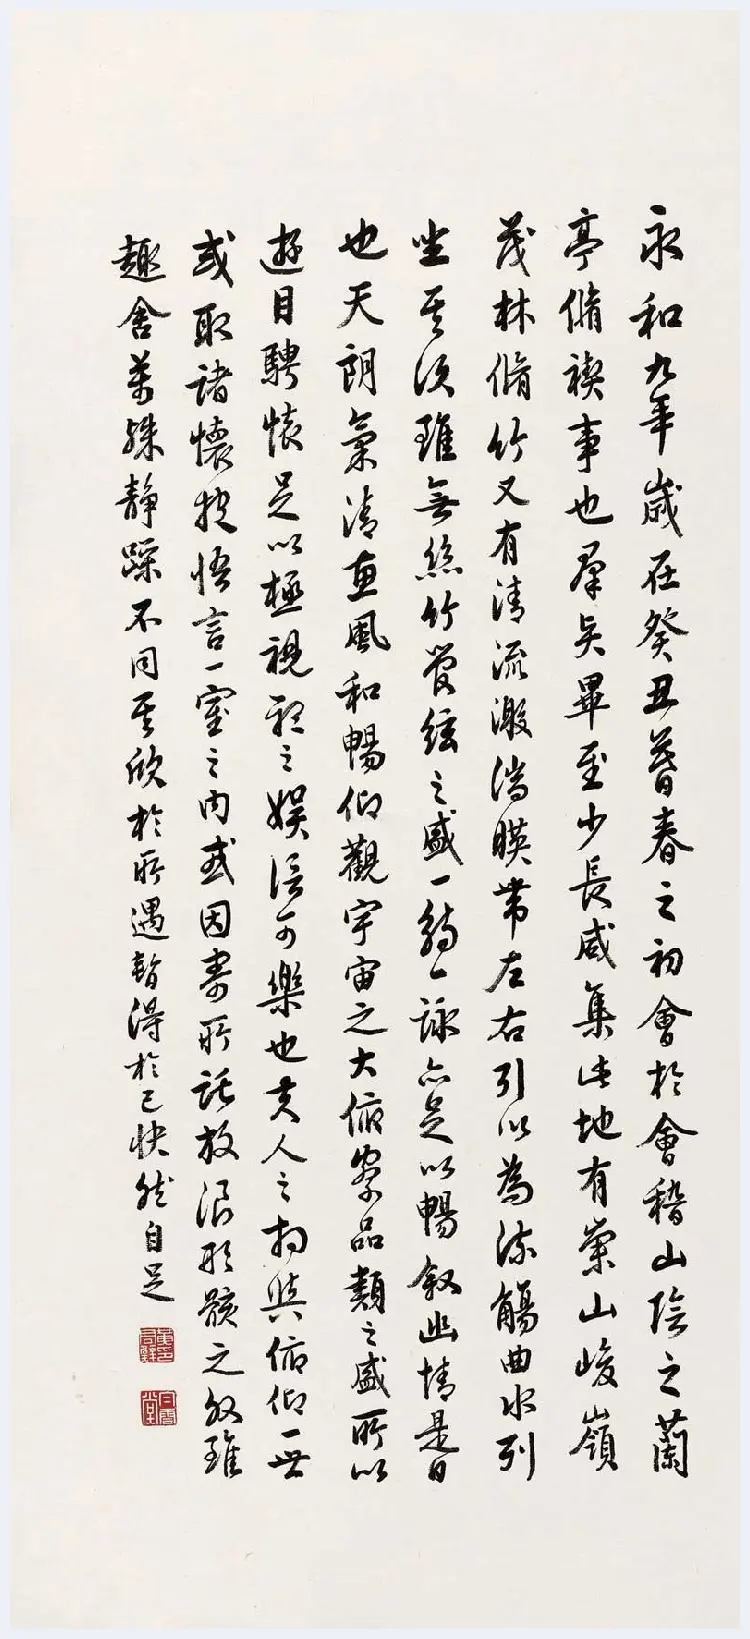 永和九年歲在癸丑暮春之初會於會稽山陰之蘭
亭脩禊事也羣賢畢至少長咸集此地有崇山峻嶺
茂林脩竹又有清流激湍暎帶左右引以為流觴曲水列
坐其次雖無絲竹管絃之盛一觴一詠亦足以暢叙幽情是日
也天朗氣清惠風和暢仰觀宇宙之大俯察品類之盛所以
遊目騁懷足以極視聽之娛信可樂也夫人之相與俯仰一世
或取諸懷抱悟言一室之內或因寄所託放浪形骸之外雖
趣舍萬殊靜躁不同其欣於所遇暫得於己快然自足